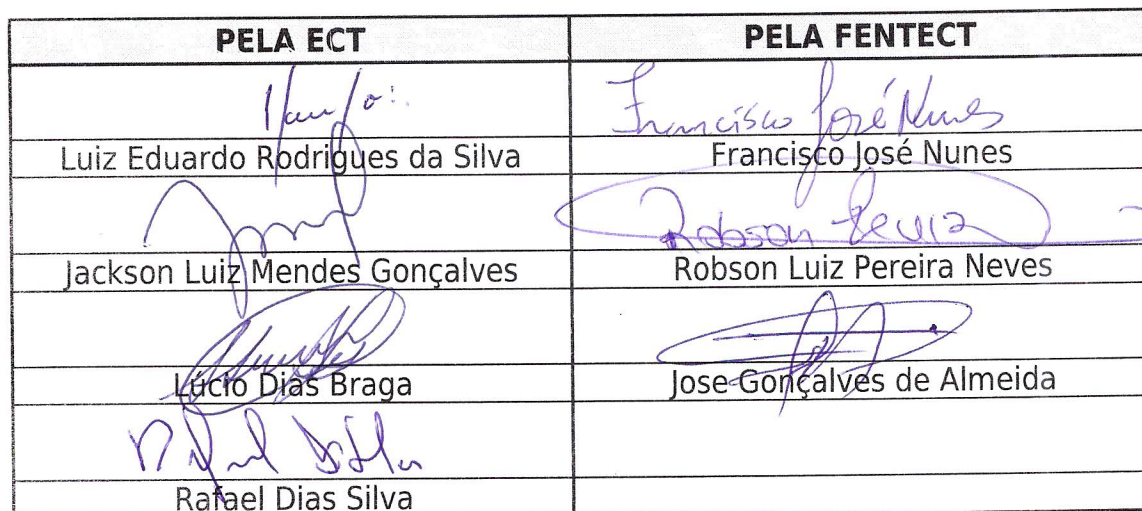 PELA ECT PELA FENTECT
Francisco José Nunes
Luiz Eduardo Rodrigues da Silva Francisco José Nunes
Robson
Jackson Luiz Mendes Gonçalves Robson Luiz Pereira Neves
Lúcio Dias Braga Jose Gonçalves de Almeida
Rafael Dias Silva